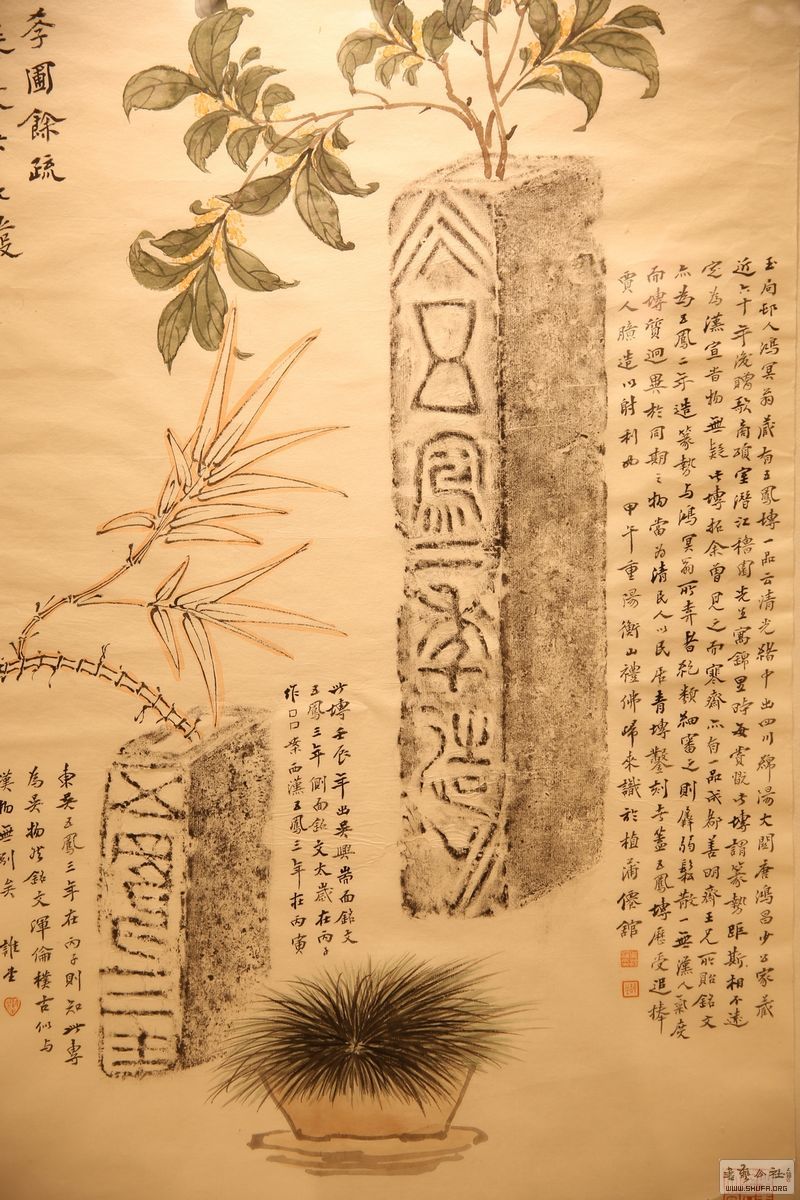 季圃餘疏
玉局邨人鴻冥翁藏有五鳳塼一品云清光緒中出四川綿陽大關唐鴻昌少公家藏
近六十年後贈歙南碩室潛江穭園先生寓錦里時每賞既此塼謂篆勢距斯相不遠
定為漢宣昔物無疑此塼拓余曾見之而寒齋亦有一品成都善明齋王兄所貽銘文
亦為五鳳二年造篆勢与鴻冥翁所弆者絕類細審之則羸弱鬆散一無漢人氣度
而塼質迥異於同期之物當為清民人以民居青塼鑿刻者蓋五鳳塼歷受追捧
賈人贋造以射利也 甲午重陽衡山禮佛歸來識於植蒲僊館
五鳳二年造
此塼壬辰年出吳興端面銘文
五鳳三年側面銘文太歲在丙子
作□□案西漢五鳳三年在丙寅
東吳五鳳三年在丙子則知此專
為吳物然銘文渾倫樸古似与
漢物無別矣
五鳳三年
書藝公社
WWW.SHUFA.ORG